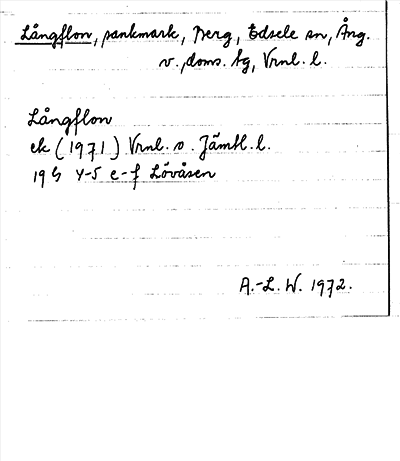 Långflon, sankmark, berg, Edsele sn, Ång.
v. doms. hg, Vrnl. l.
Långflon
ek (1971) Vrnl. o. Jämtl. l.
19 G 4-5 e-f Lövåsen
A.-L. W. 1972.